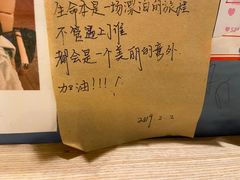 生命本是一场漂泊的旅程
不管遇上了谁
都会是一个美丽的意外
加油!!!
2019. 2. 2